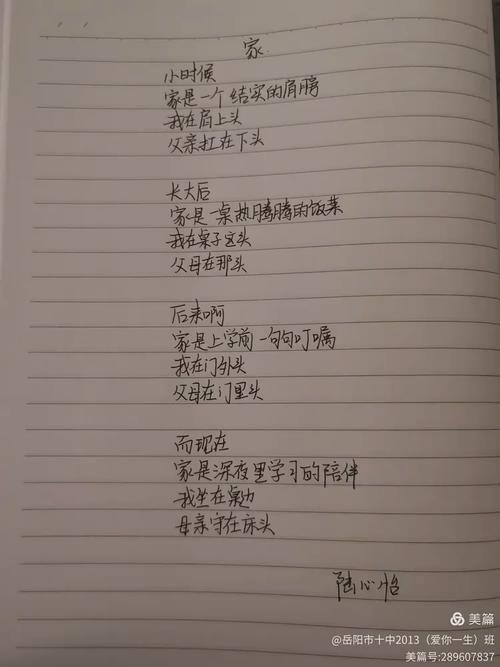 家
小时候
家是一个结实的肩膀
我在肩上头
父亲扛在下头
长大后
家是一桌热腾腾的饭菜
我在桌子这头
父母在那头
后来啊
家是上学前一句句叮嘱
我在门外头
父母在门里头
而现在
家是深夜里学习的陪伴
我坐在桌边
母亲守在床头
陆心怡
美篇
@岳阳市十中2013（爱你一生）班
美篇号:289607837